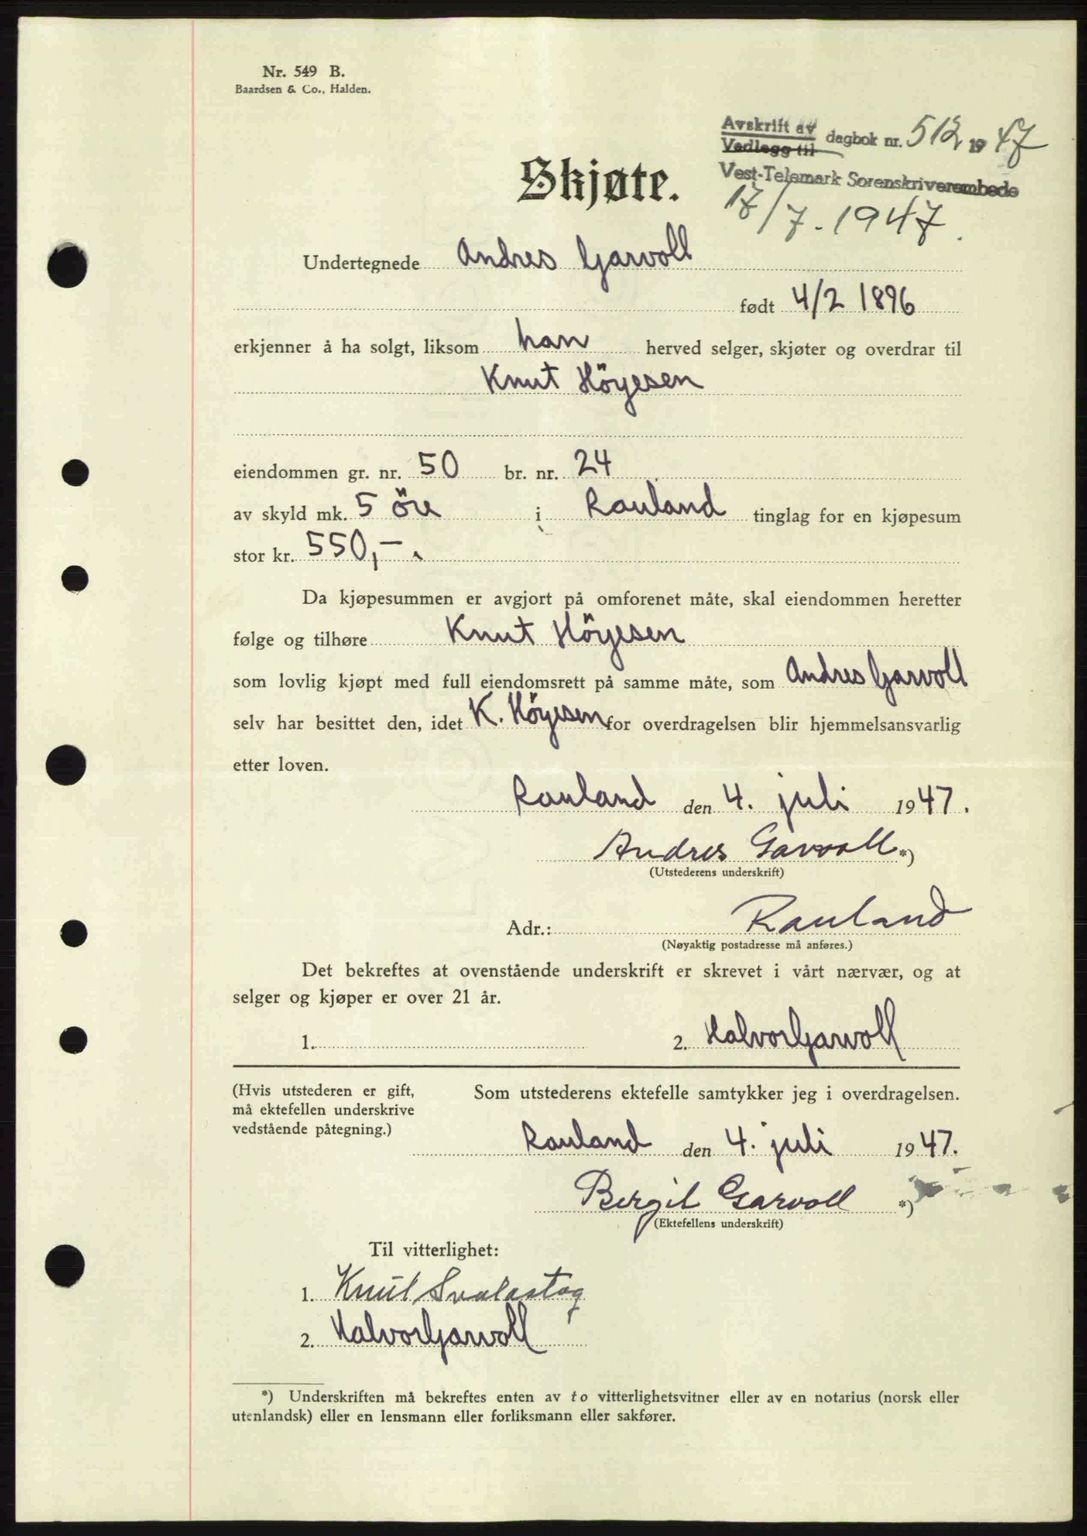 Nr. 549 B.
Baardsen & Co., Halden.
Avskrift av
Vedlegg til
dagbok nr. 512 1947
Vest-Telemark Sorenskriverembede
17/7. 1947.
Skjøte.
Undertegnede Andres Garvoll
født 4/2 1896
erkjenner å ha solgt, liksom han herved selger, skjøter og overdrar til
Knut Höyesen
eiendommen gr. nr. 50 br. nr. 24
av skyld mk. 5 öre i Rauland tinglag for en kjøpesum
stor kr. 550,-.
Da kjøpesummen er avgjort på omforenet måte, skal eiendommen heretter
følge og tilhøre Knut Höyesen
som lovlig kjøpt med full eiendomsrett på samme måte, som Andres Garvoll
selv har besittet den, idet K. Höyesen for overdragelsen blir hjemmelsansvarlig
etter loven.
Rauland den 4. juli 1947.
Andres Garvoll *)
(Utstederens underskrift)
Adr.: Rauland
(Nøyaktig postadresse må anføres.)
Det bekreftes at ovenstående underskrift er skrevet i vårt nærvær, og at
selger og kjøper er over 21 år.
1. 2. Halvor Garvoll
(Hvis utstederen er gift,
må ektefellen underskrive
vedstående påtegning.)
Som utstederens ektefelle samtykker jeg i overdragelsen.
Rauland den 4. juli 1947.
Bergit Garvoll *)
(Ektefellens underskrift)
Til vitterlighet:
1. Knut Svalastog
2. Halvor Garvoll
*) Underskriften må bekreftes enten av to vitterlighetsvitner eller av en notarius (norsk eller
utenlandsk) eller en lensmann eller forliksmann eller sakfører.